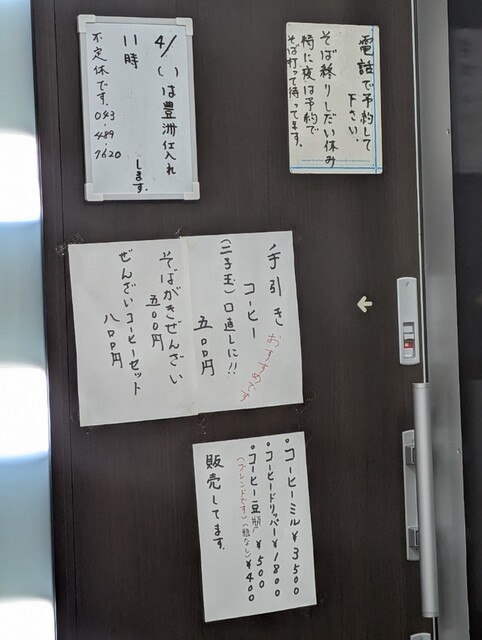 電話で予約して
下さい.
そば終りしだい休み
特に夜は予約で
そば打って待ってます.
4/ は豊洲仕入れ
11時
します.
不定休です. 043
・489
・7620
手引き
コーヒー
おすすめです
(二子玉)口直しに!!
五〇〇円
そばがきぜんざい
五〇〇円
ぜんざいコーヒーセット
八〇〇円
○コーヒーミル ¥3500
○コーヒードリッパー¥1800
○コーヒー豆 ¥500
(ブレンドです)(瓶なし)¥400
販売してます.